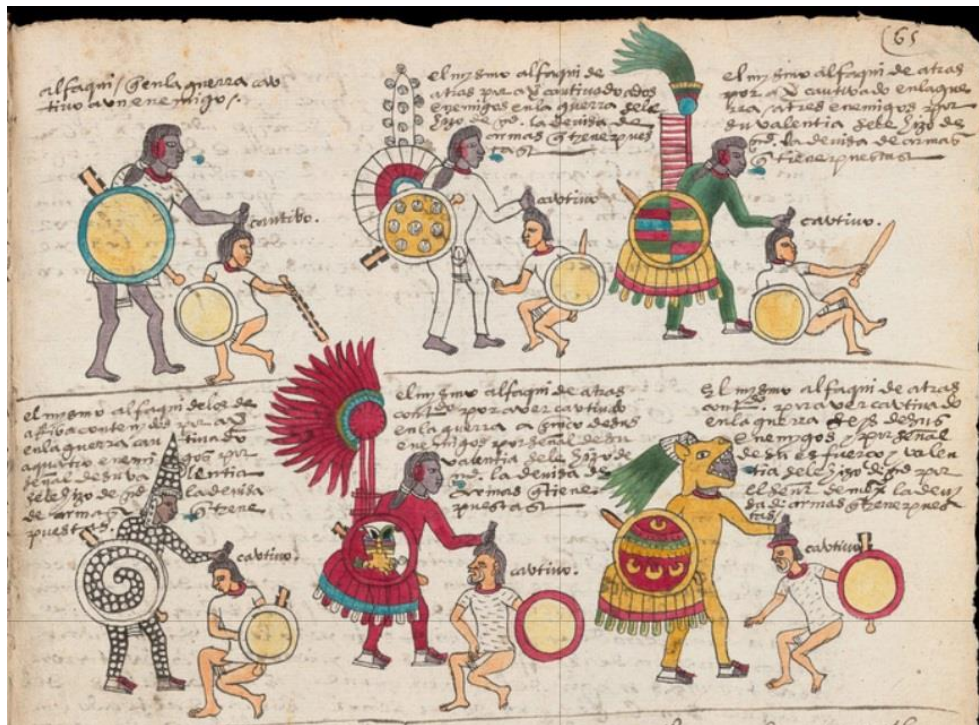 65
alfaqui / q̄ en la guerra cau
tivo a un enemigo /.
cautibo.
el mysmo alfaqui de
atras por aver cautivado a dos
enemigos en la guerra sele
hizo de md. la devisa de
armas q̄ tiene pues
tas
cautivo
el mysmo alfaqui de atras
por aver cautivado en la gue
rra a tres enemigos y por
su valentia sele hizo de
md. la devisa de armas
q̄ tiene puestas
cautivo.
el mysmo alfaqui de los de
arriba contenidos por aver
en la guerra cautivado
a quatro enemigos y por
señal de su valentia
sele hizo de md. la devisa
de armas q̄ tiene
puestas.
cautivo.
el mysmo alfaqui de atras
contdo. por aver cautivado
en la guerra a cinco de sus
enemigos por señal de su
valentia sele hizo de
md. la devisa de
armas q̄ tiene
puestas
cautivo.
El mysmo alfaqui de atras
contdo. por aver cautivado
en la guerra seys de sus
enemigos y por señal
de su esfuerço y valen
tia sele hizo de md por
el señor de mexco la devi
sa de armas q̄ tiene pues
tas
cautivo